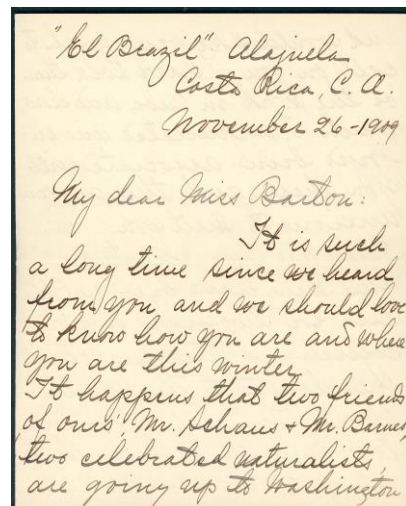 "El Brazil" Alajuela
Costa Rica, C. A.
November 26-1909
My dear Miss Barton:
It is such
a long time since we heard
from you and we should love
to know how you are and where
you are this winter.
It happens that two friends
of ours, Mr. Schaus & Mr. Barnes,
two celebrated naturalists,
are going up to Washington